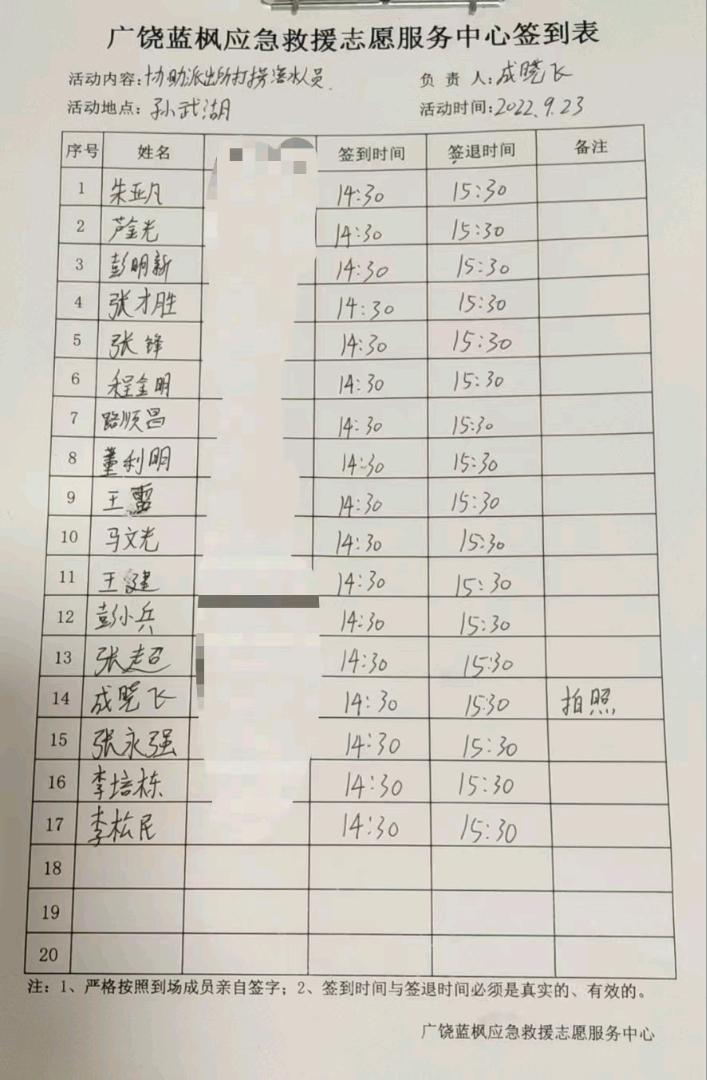 广饶蓝枫应急救援志愿服务中心签到表
活动内容:协助派出所打捞溺水人员. 负 责 人:成晓飞
活动地点:孙武湖 活动时间:2022.9.23
序号 姓名 签到时间 签退时间 备注
1 朱亚凡 14:30 15:30
2 芦金光 14:30 15:30
3 彭明新 14:30 15:30
4 张才胜 14:30 15:30
5 张锋 14:30 15:30
6 程金明 14:30 15:30
7 路顺昌 14:30 15:30
8 董利明 14:30 15:30
9 王雷 14:30 15:30
10 马文光 14:30 15:30
11 王建 14:30 15:30
12 彭小兵 14:30 15:30
13 张超 14:30 15:30
14 成晓飞 14:30 15:30 拍照
15 张永强 14:30 15:30
16 李培栋 14:30 15:30
17 李松民 14:30 15:30
18
19
20
注:1、严格按照到场成员亲自签字;2、签到时间与签退时间必须是真实的、有效的。
广饶蓝枫应急救援志愿服务中心